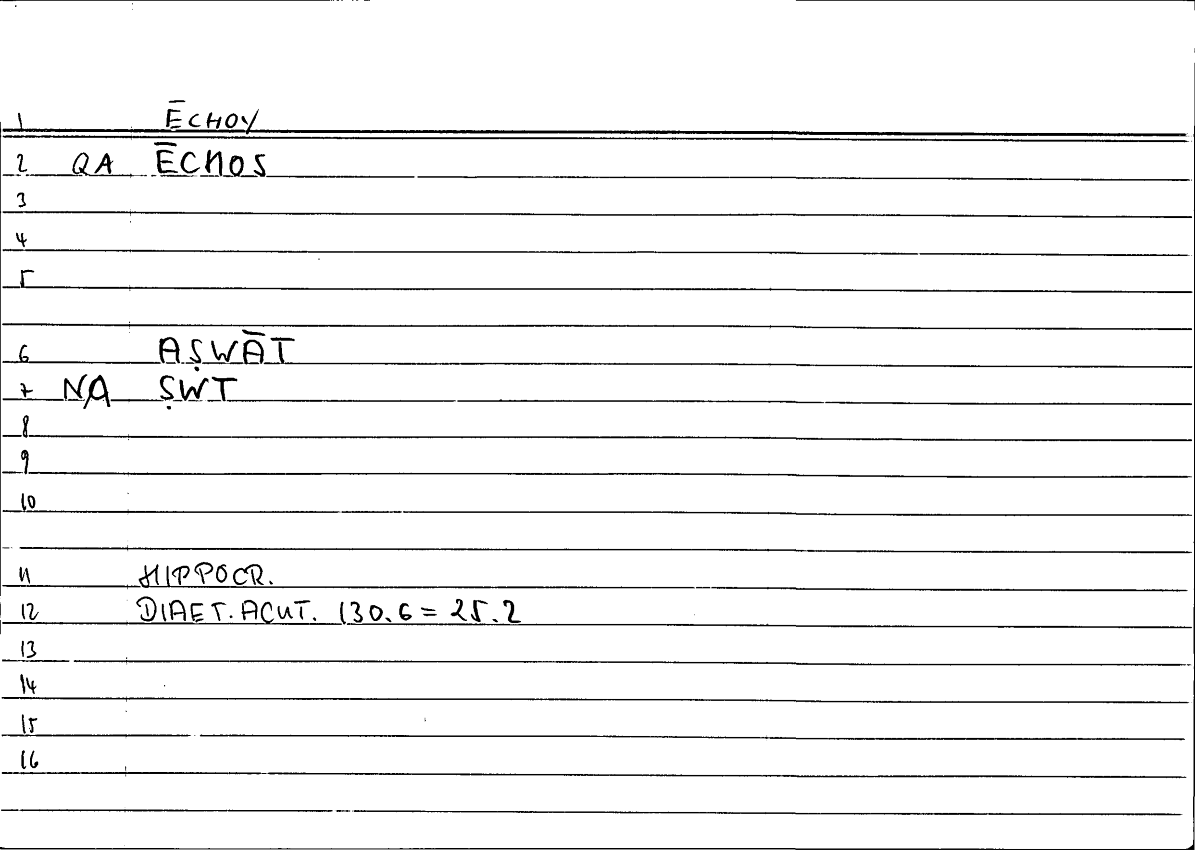 1 ĒCHOY
2 QA ĒCHOS
3
4
5
6 AṢWĀT
7 NA ṢWT
8
9
10
11 HIPPOCR.
12 DIAET. ACUT. 130.6 = 25.2
13
14
15
16